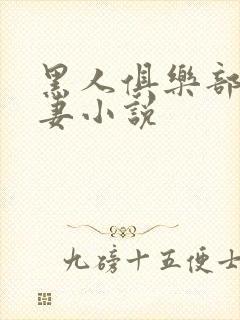 黑人俱樂部
妻小說
九磅十五便士